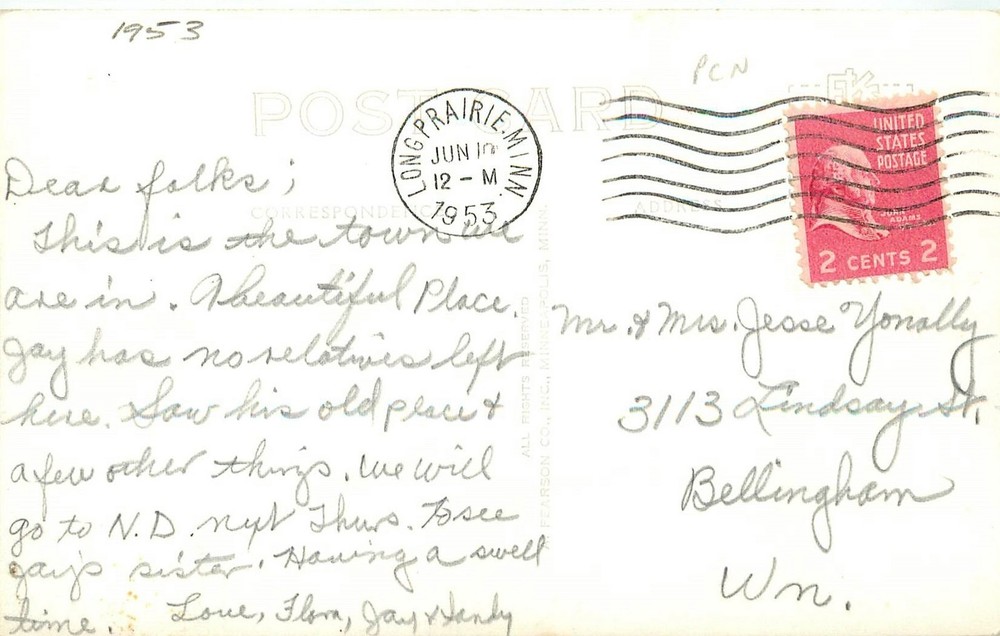 1953
PCN
POST CARD
LONG PRAIRIE. MINN.
JUN 1
12 - M
1953
UNITED
STATES
POSTAGE
JOHN
ADAMS
2 CENTS 2
CORRESPONDENCE
ADDRESS
Dear folks;
This is the town we
are in. A beautiful Place.
Jay has no relatives left
here. Saw his old place &
a few other things. We will
go to N.D. nxt Thurs. to see
Jay's sister. Having a swell
time. Love, Flora, Jay & Sandy
ALL RIGHTS RESERVED
PEARSON CO., INC., MINNEAPOLIS, MINN.
Mr. & Mrs. Jesse Yonally
3113 Lindsay St.
Bellingham
Wn.